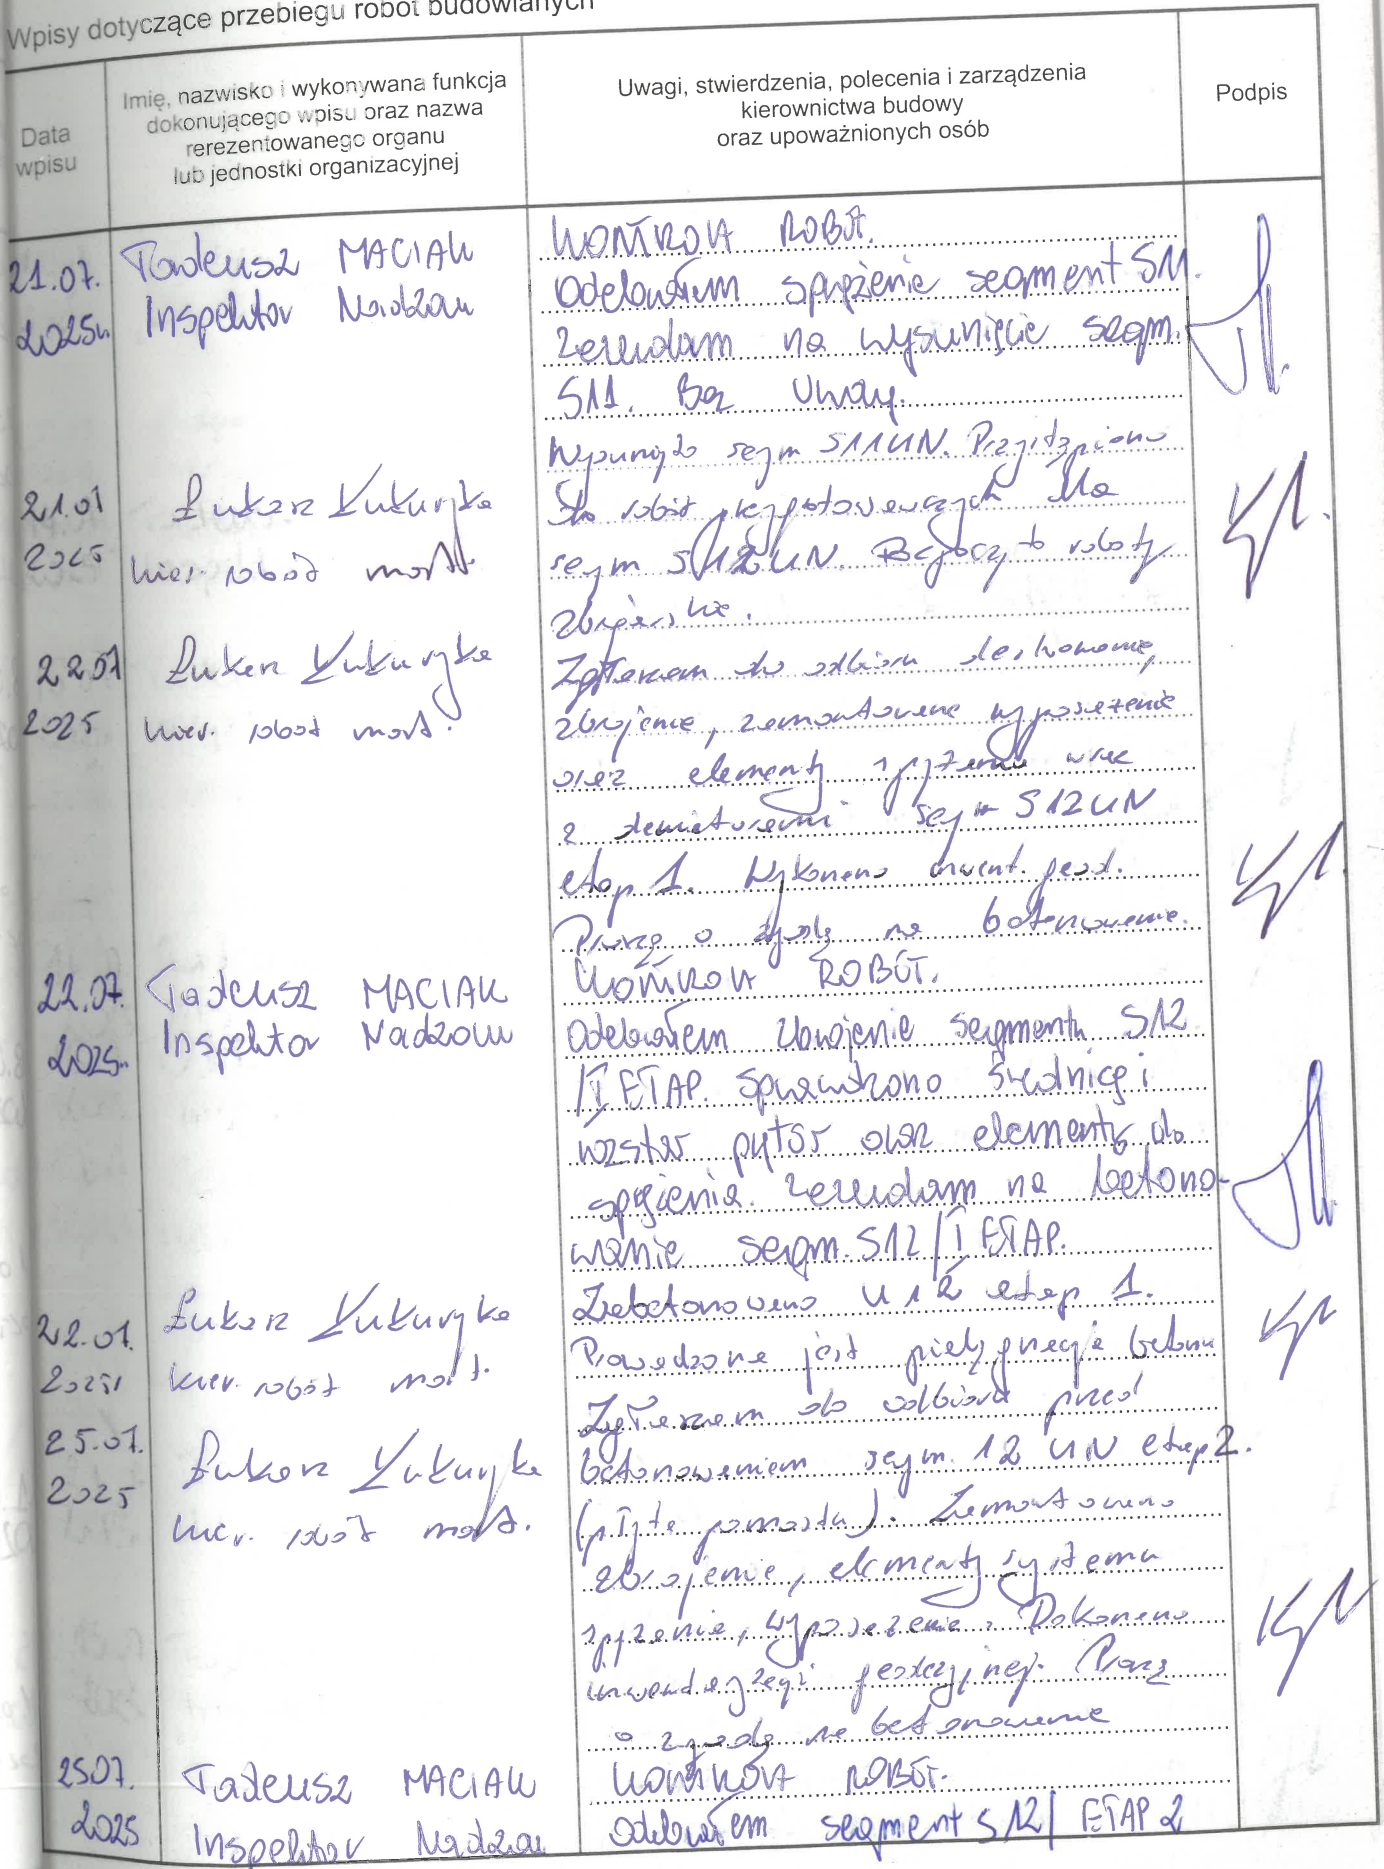 Wpisy dotyczące przebiegu robót budowlanych
Data
wpisu
Imię, nazwisko i wykonywana funkcja
dokonującego wpisu oraz nazwa
rerezentowanego organu
lub jednostki organizacyjnej
Uwagi, stwierdzenia, polecenia i zarządzenia
kierownictwa budowy
oraz upoważnionych osób
Podpis
21.07.
2025r.
Tadeusz MACIAK
Inspektor Nadzoru
KONTROLA ROBÓT.
Odebrałem sprężenie segment S11.
Zezwalam na wysunięcie segm.
S11. Bez Uwag.
21.07
2025
Łukasz
kier. robót most.
Wysunięto segm S11UN. Przystąpiono
do robót przygotowawczych dla
segm S12UN. Rozpoczęto roboty
zbrojarskie.
22.07
2025
Łukasz
kier. robót most.
Zgłaszam do odbioru deskowanie,
zbrojenie, zamontowane wyposażenie
oraz elementy sprężenia wraz
z segm S12UN
etap 1. Wykonano inwent. geod.
Proszę o zgodę na betonowanie.
22.07.
2025r.
Tadeusz MACIAK
Inspektor Nadzoru
KONTROLA ROBÓT.
Odebrałem zbrojenie segmentu S12
/I ETAP. Sprawdzono średnicę i
rozstaw prętów oraz elementy do
sprężenia. Zezwalam na betono-
wanie segm. S12/I ETAP.
22.07.
2025r
Łukasz
kier. robót most.
Zabetonowano U12 etap 1.
Prowadzona jest pielęgnacja betonu
25.07.
2025
Łukasz
kier. robót most.
Zgłaszam do odbioru przed
betonowaniem segm. 12 UN etap 2.
(płyta pomostu). Zamontowano
zbrojenie, elementy systemu
sprężenia, wyposażenie. Dokonano
inwentaryzacji geodezyjnej. Proszę
o zgodę na betonowanie
25.07.
2025
Tadeusz MACIAK
Inspektor Nadzoru
KONTROLA ROBÓT.
Odebrałem segment S12/ ETAP 2